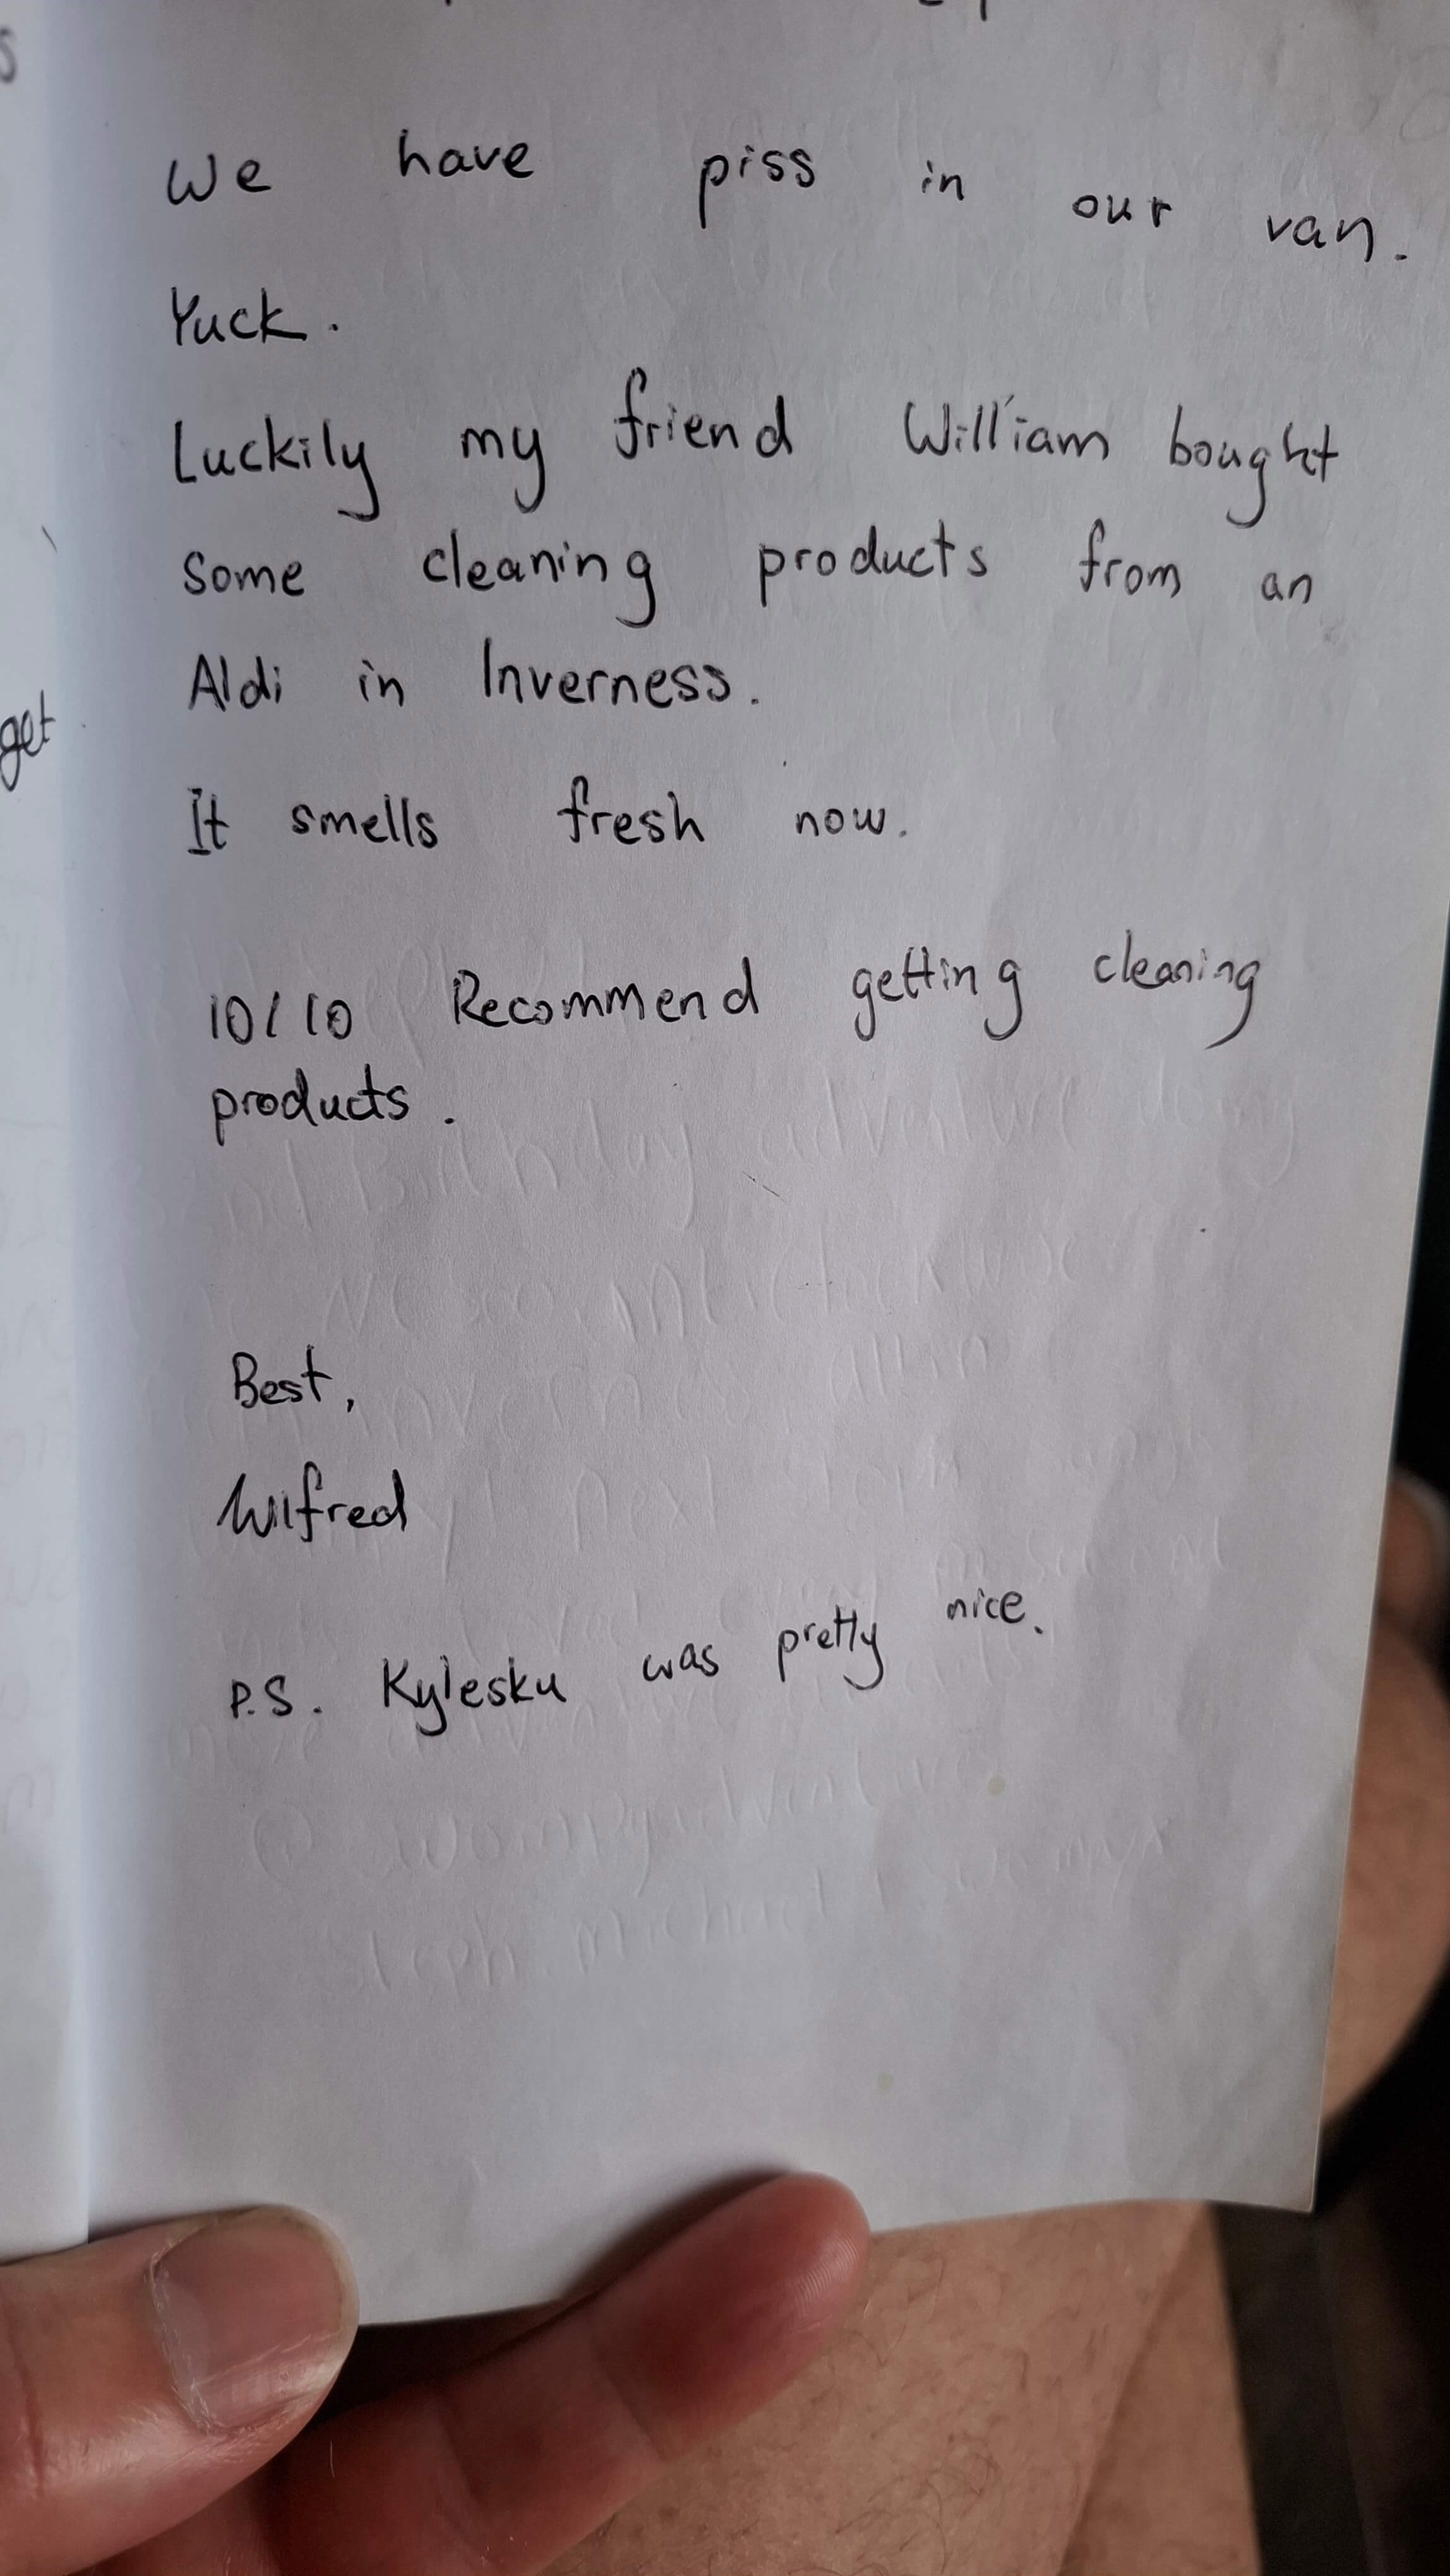 We have piss in our van.
Yuck.
Luckily my friend William bought
some cleaning products from an
Aldi in Inverness.
get
It smells fresh now.
10/10 Recommend getting cleaning
products.
Best,
Wilfred
P.S. Kylesku was pretty nice.